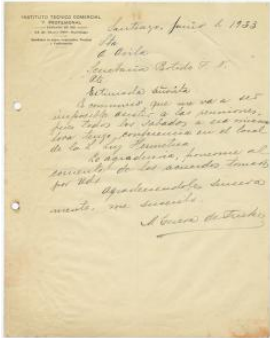 INSTITUTO TECNICO COMERCIAL
Y PROFESIONAL
Santiago, Junio 1933
Sta
A. Avila
Secretaria Partido F. N.
Pte
Estimada Señorita
Le comunico que me va a ser
imposible asistir a las reuniones,
pues todos los Sabados a esa misma
hora tengo conferencia en el local
de la Luz Hermetica
Le agradeceria, ponerme al
corriente de los acuerdos tomados
por Uds
Agradeciendoles sincera
mente, me suscribo.